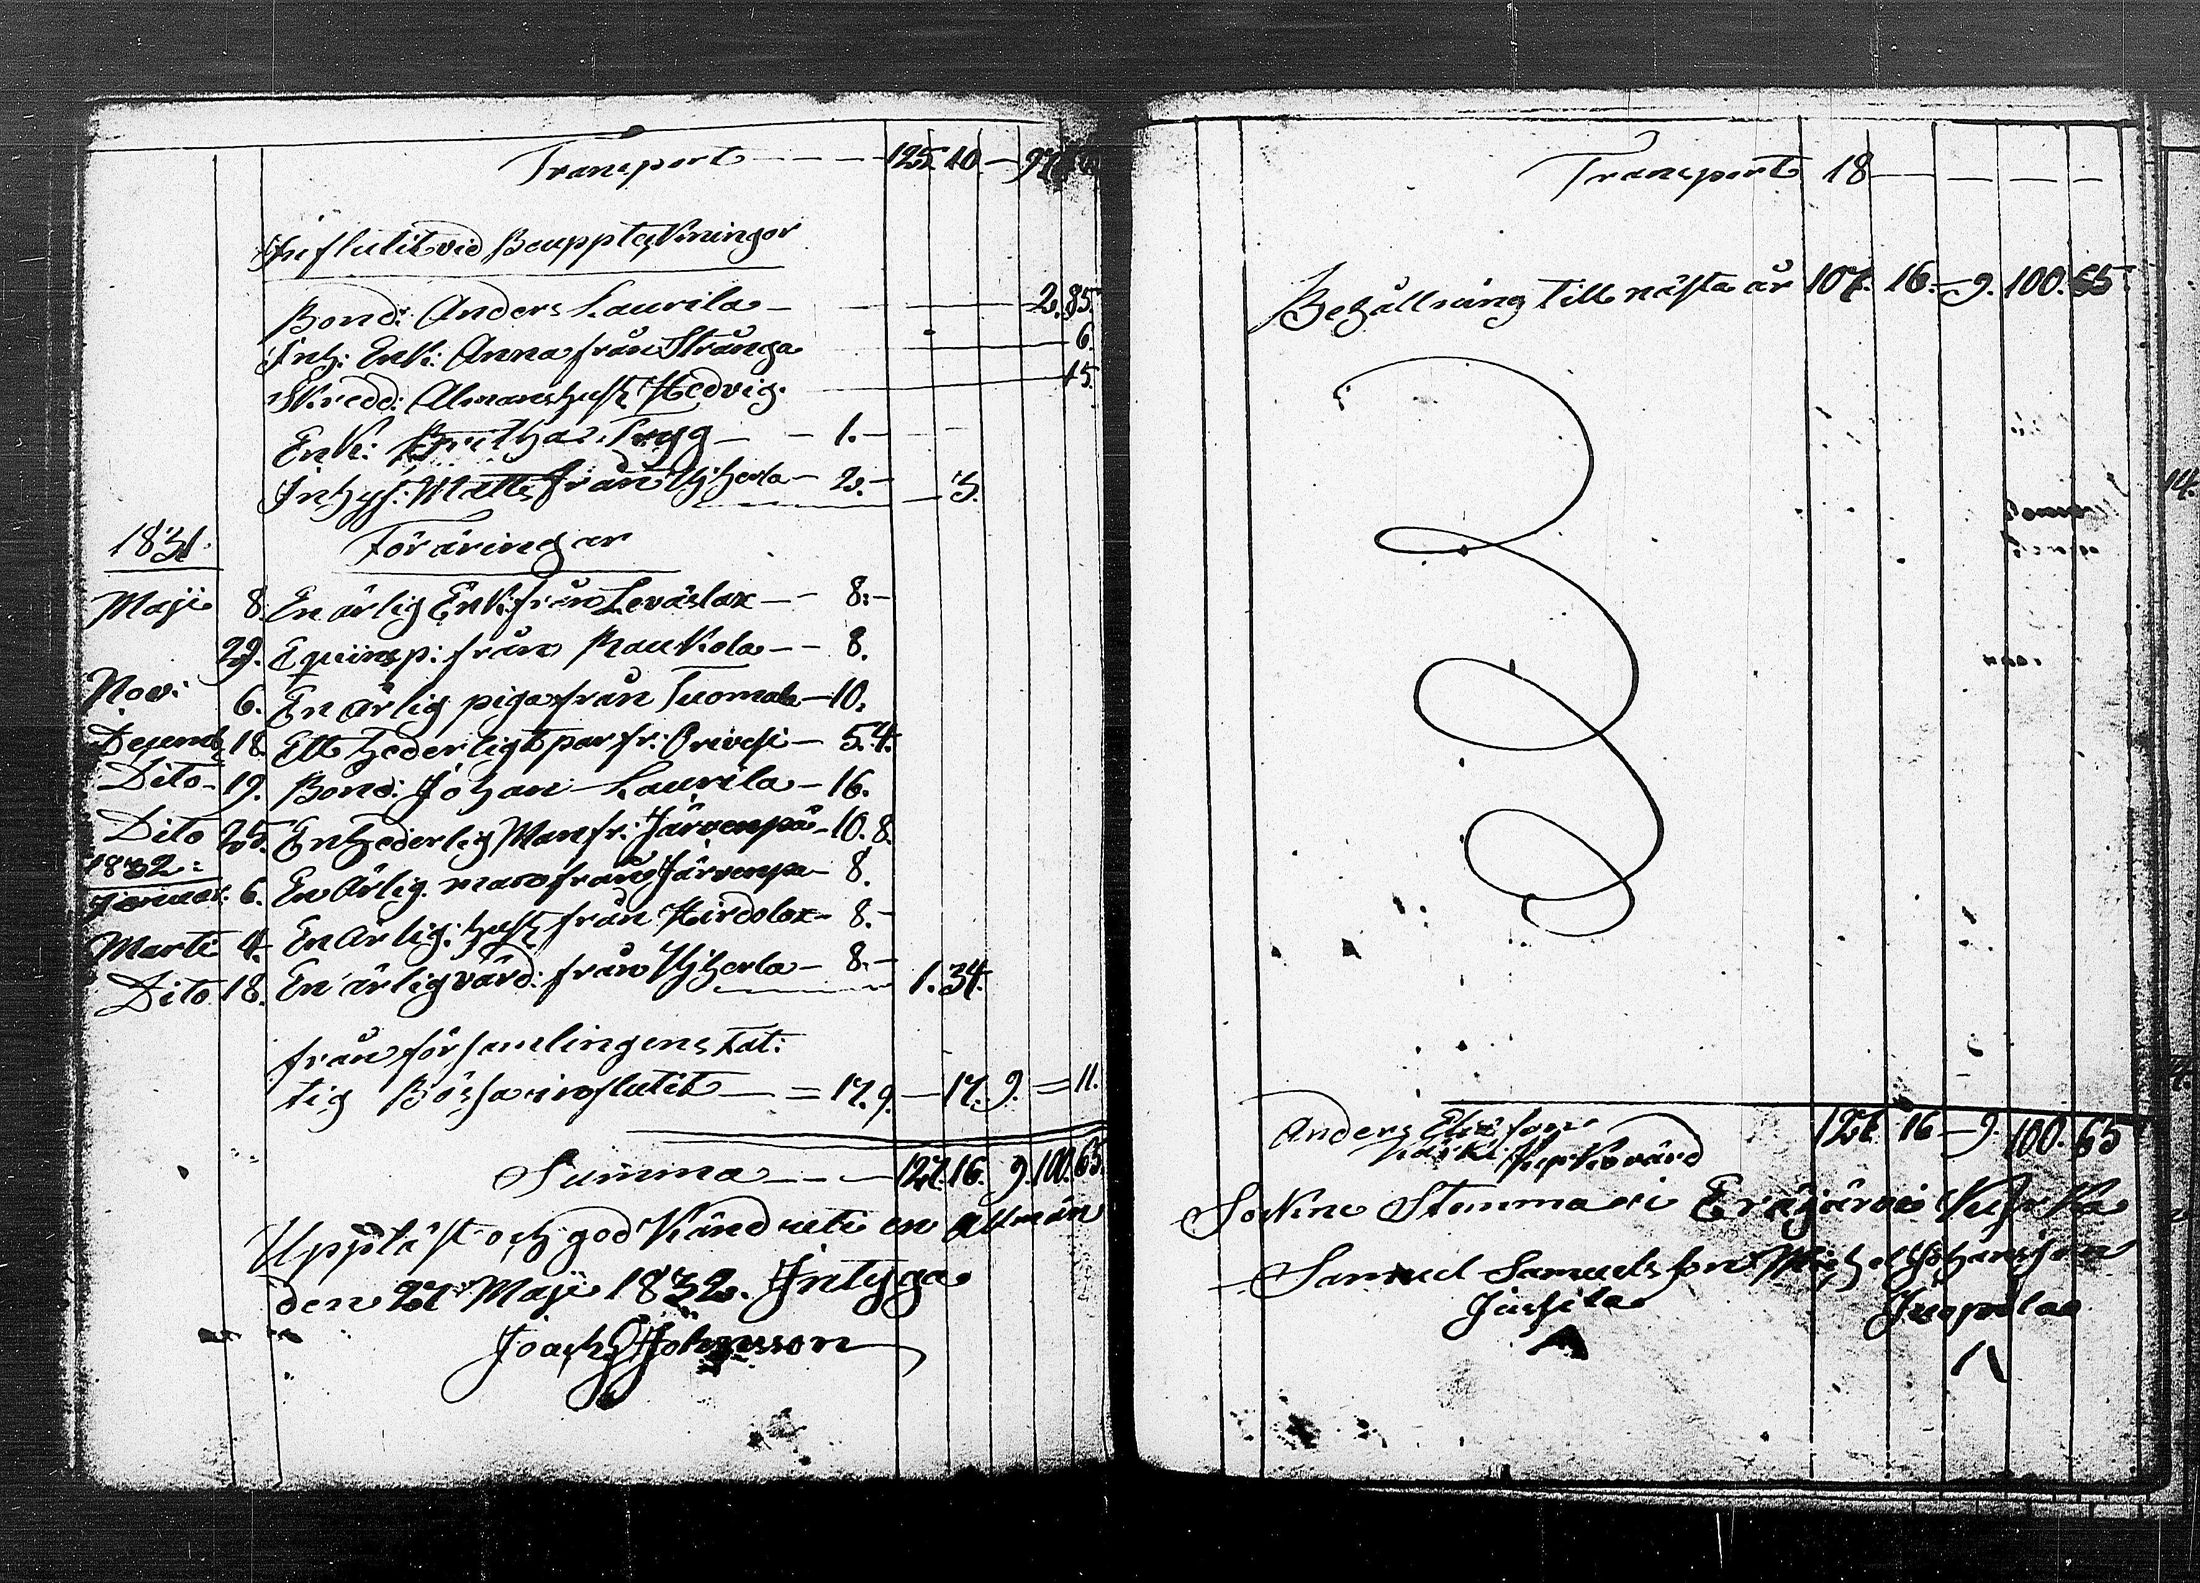 Transport — — — 125. 10. — 97.
Influtit vid Bouppteckningar
Bond: Anders Laurila — — — 2. 85.
Inh: Enk: Anna från Stränga — 6.
Skredd: Almans hust: Hedvig. — 15.
Enk: Britha Trygg — — 1. —
Inhys: Matts från Yiherla — 2. — — 3.
1831. Föräringar
Maji 8. En ärlig Enk: från Leväslax — — 8. —
29. Eqvinsp: från Raukola — — 8.
Nov: 6. En ärlig piga från Tuomala — 10.
Desemb: 18. Ett hederligt par fr: Orivesi — 5. 4.
Dito — 19. Bond: Johan Laurila — 16.
Dito 25. En hederlig Man fr: Järvenpä — 10. 8.
1832:
Januar: 6. En ärlig man från Järvenpä — 8.
Marti 4. En ärlig: hust från Hirdolax — 8. —
Dito 18. En ärlig värd: från Yiherla — 8. — 1. 34.
från församlingens Fat:
tig Bössa influtit — = 17. 9. — 17. 9. = 11.
Summa — — — 127. 16. 9. 100. 65.
Uppläst och god Känd uti en allmän
den 27 Maji 1832. Intyga
Joach: Johnsson
Transport 18 — — — — —
Behållning till nästa år 107. 16. — 9. 100. 65
127 16 — 9. 100. 65
Anders
Kyrkovärd
Sokne Stemma i Eräjärvi Kyrka
Samuel Samuelsson Michel Johansson
Jussila Juopila